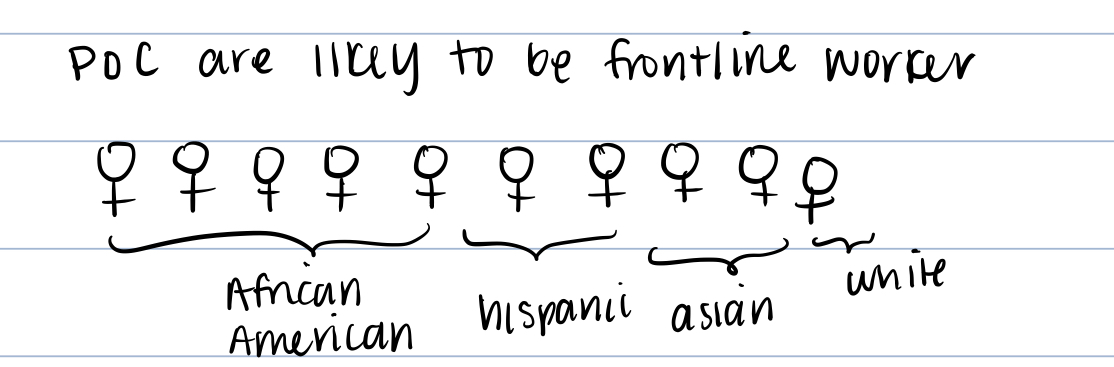 POC are likely to be frontline worker
♀ ♀ ♀ ♀ ♀ ♀ ♀ ♀ ♀ ♀
African American
hispanic
asian
white